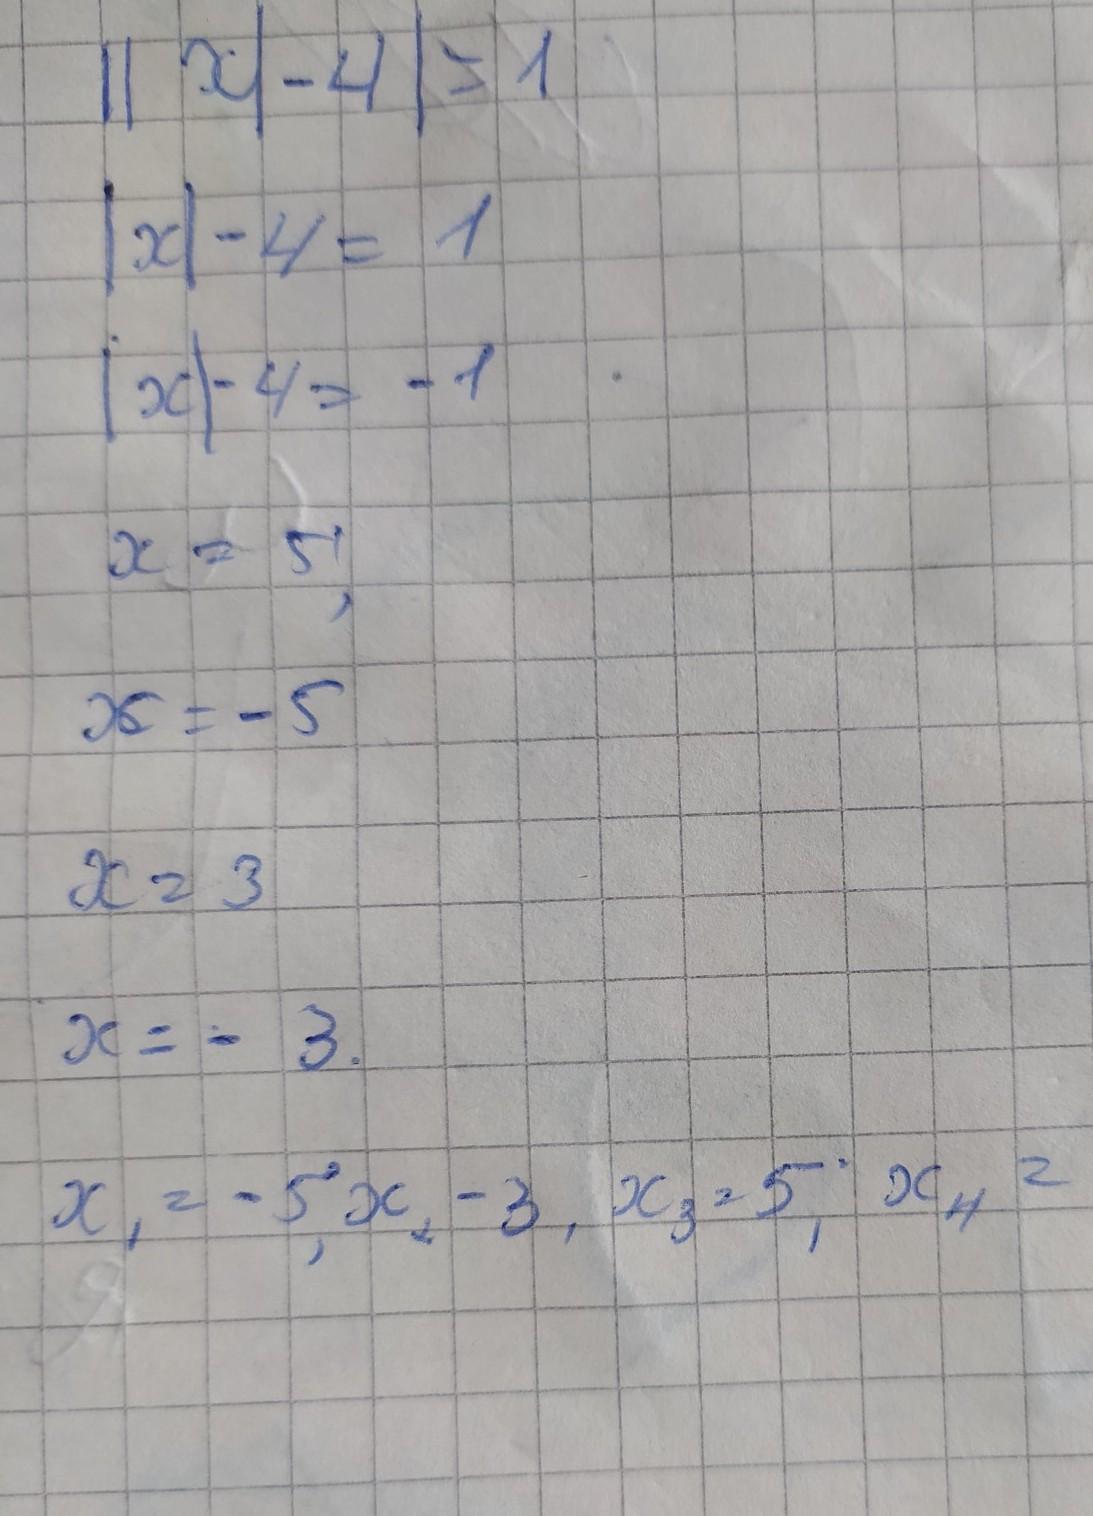 ||x|-4|=1
|x|-4=1
|x|-4=-1
x=5;
x=-5
x=3
x=-3.
x₁=-5, x₂-3, x₃=5, x₄=